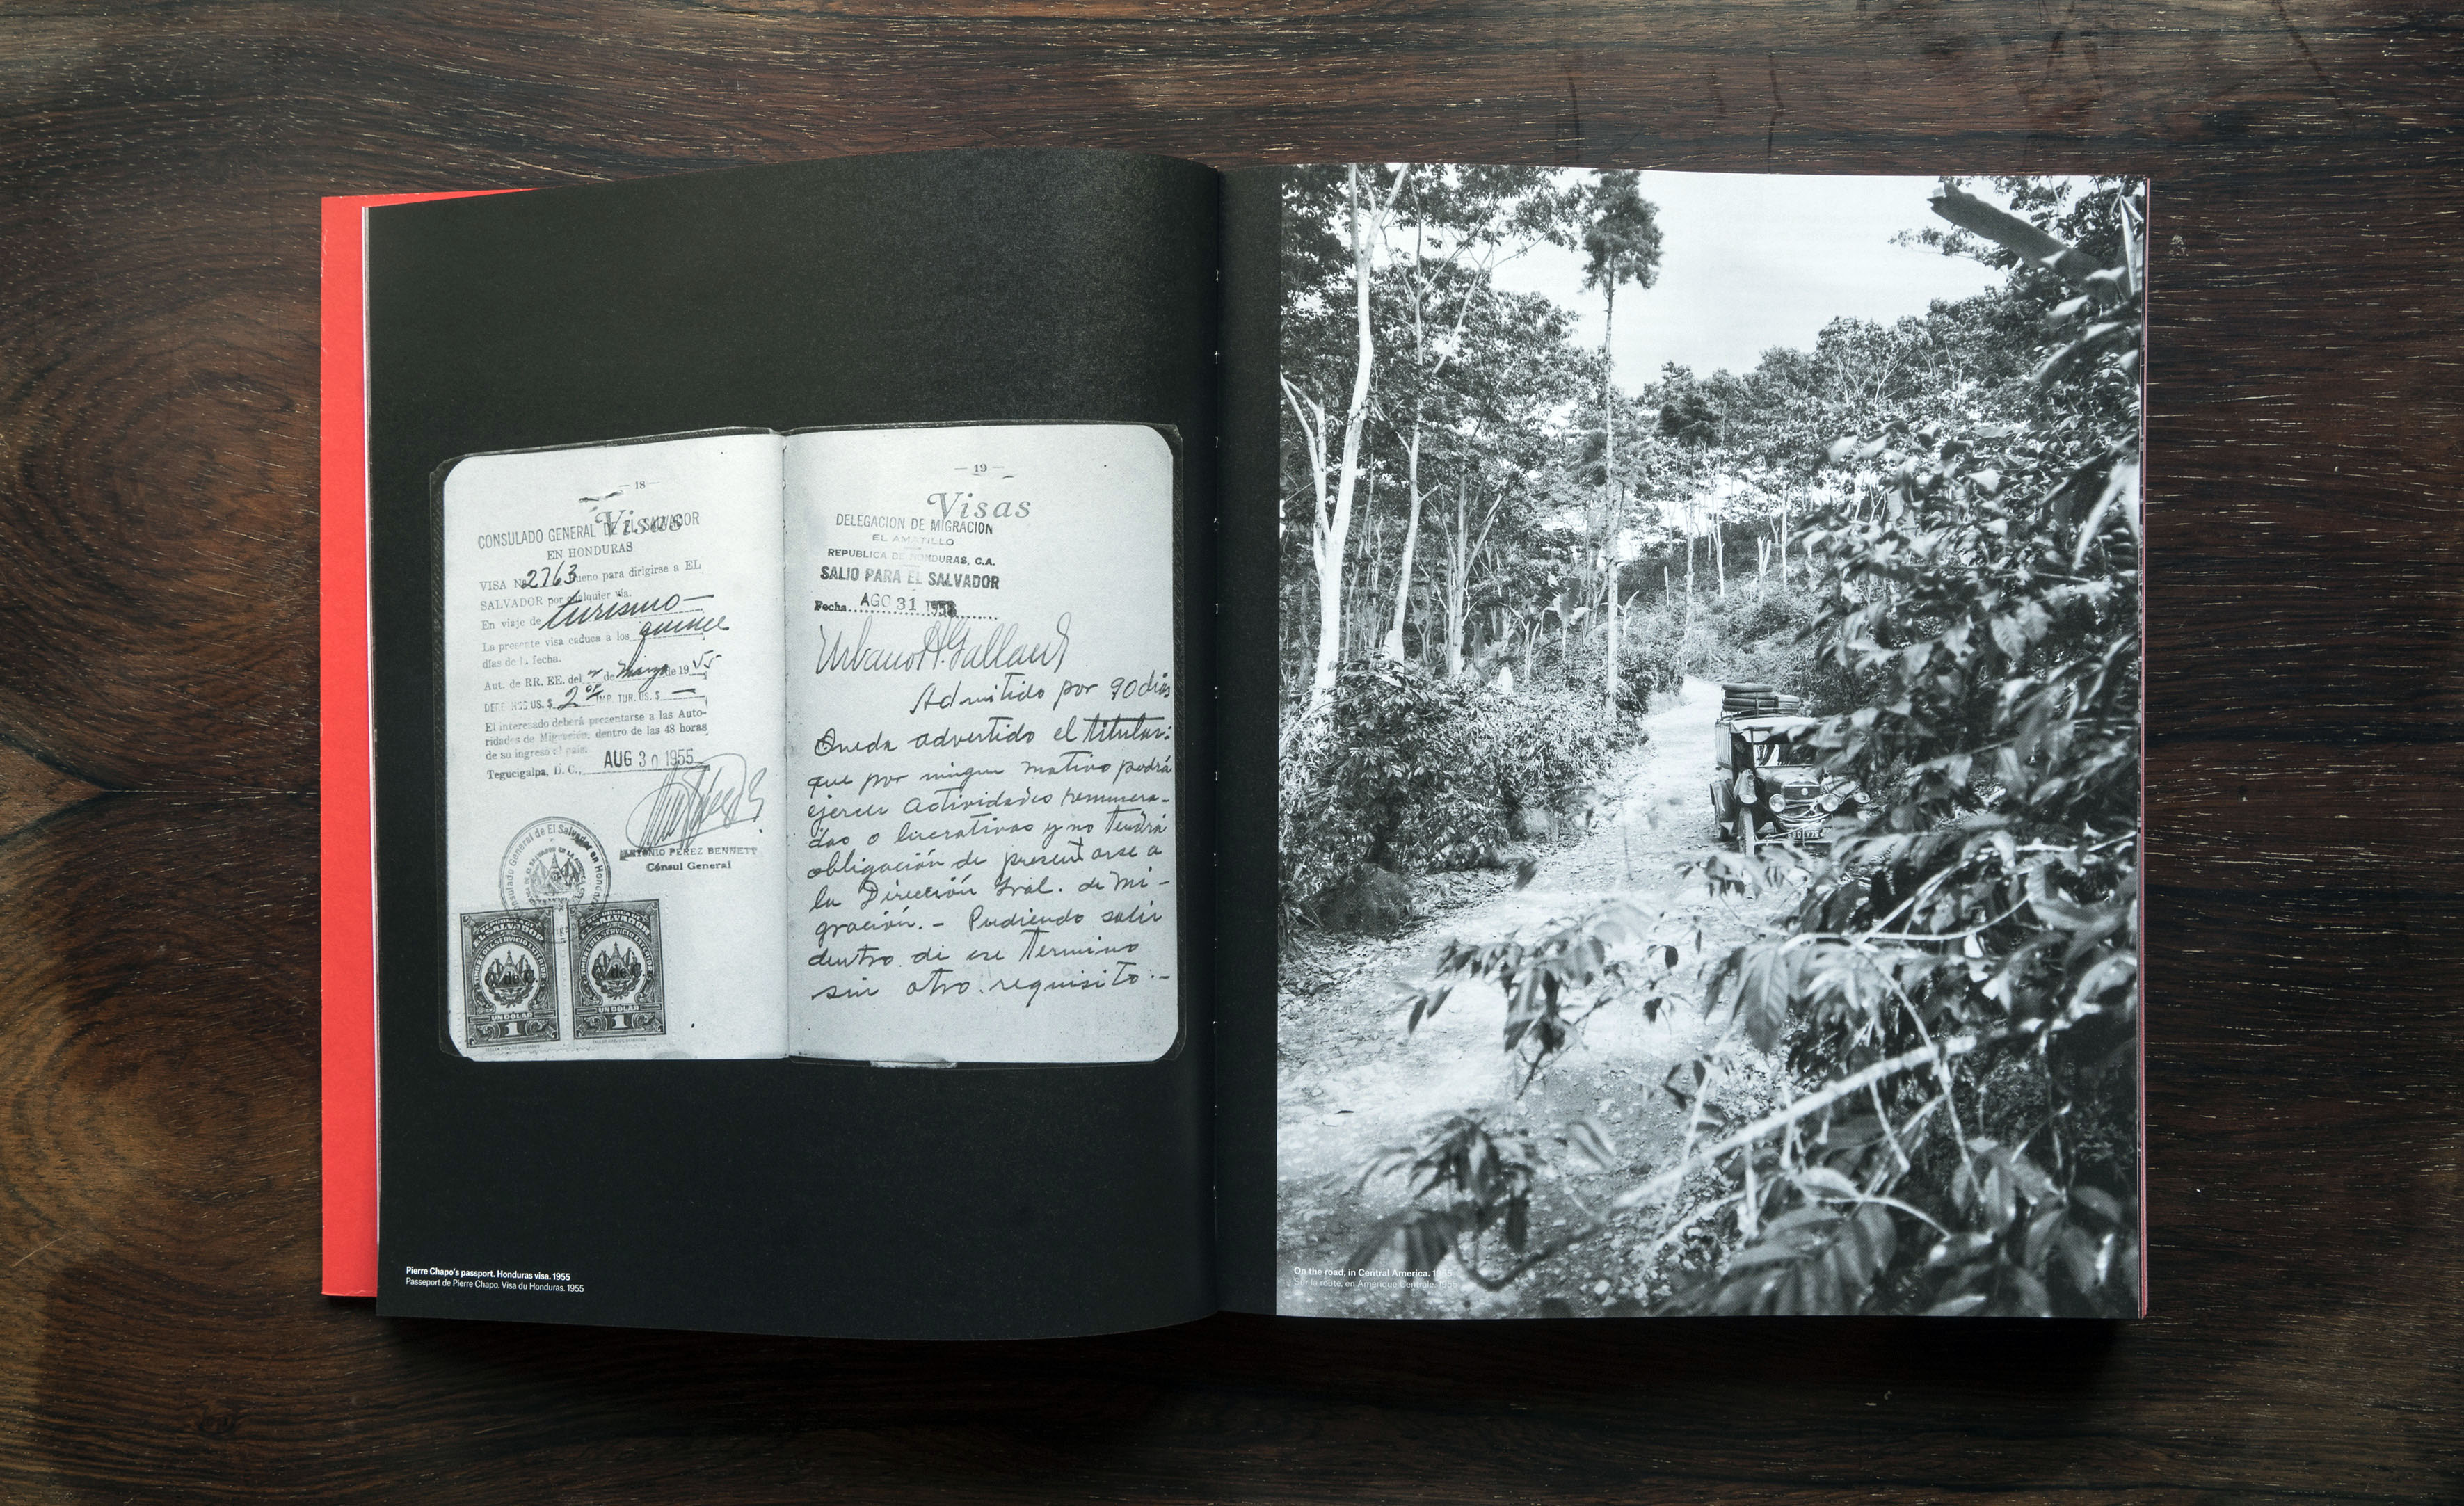 — 18 —
Visas
CONSULADO GENERAL DE EL SALVADOR
EN HONDURAS
VISA No 2763 bueno para dirigirse a EL
SALVADOR por cualquier vía.
En viaje de turismo —
La presente visa caduca a los quince
días de la fecha.
Aut. de RR. EE. del de 19 55
US. $ 2 IMP. TUR. US. $ —
El interesado deberá presentarse a las Auto-
ridades de Migración, dentro de las 48 horas
de su ingreso al país.
Tegucigalpa, D. C., AUG 30 1955
ANTONIO PEREZ BENNETT
Cónsul General
Consulado General de El Salvador en Honduras
EL SALVADOR
C. de C.
UN DOLAR
1
SALVADOR
C. de C.
UN DOLAR
1
— 19 —
Visas
DELEGACION DE MIGRACION
EL AMATILLO
REPUBLICA DE HONDURAS, C.A.
SALIO PARA EL SALVADOR
Fecha AGO 31 1955
Admitido por 90 dias
Queda advertido el titular:
que por ningun motivo podrá
ejercer actividades remunera-
das o lucrativas y no tendrá
obligación de presentarse a
la Dirección Gral. de Mi-
gración. — Pudiendo salir
dentro de ese termino
sin otro requisito. —
Pierre Chapo's passport. Honduras visa. 1955
Passeport de Pierre Chapo. Visa du Honduras. 1955
On the road, in Central America. 1955
Sur la route, en Amérique Centrale. 1955